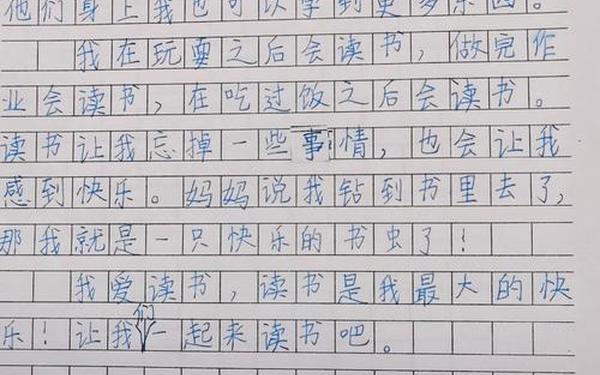 他们身上我也可以学到更多东西。
我在玩耍之后会读书，做完作
业会读书，在吃过饭之后会读书。
读书让我忘掉一些事情，也会让我
感到快乐。妈妈说我钻到书里去了，
那我就是一只快乐的书虫了！
我爱读书，读书是我最大的快
乐！让我们一起来读书吧。